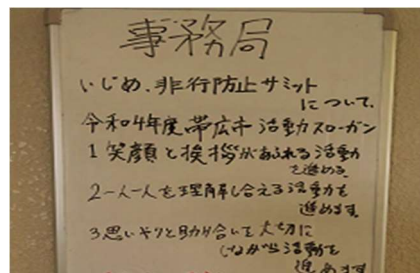 事務局
いじめ、非行防止サミット
について、
令和4年度帯広市活動スローガン
1 笑顔と挨拶があふれる活動
を進める。
2 一人一人を理解し合える活動を
進めます。
3 思いやりと助け合いを大切に
しながら活動を
進めます